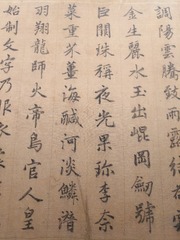 調陽雲騰致雨露結為霜
金生麗水玉出崐岡劍號
巨闕珠稱夜光果珍李奈
菜重芥薑海鹹河淡鱗潛
羽翔龍師火帝鳥官人皇
始制文字乃服衣